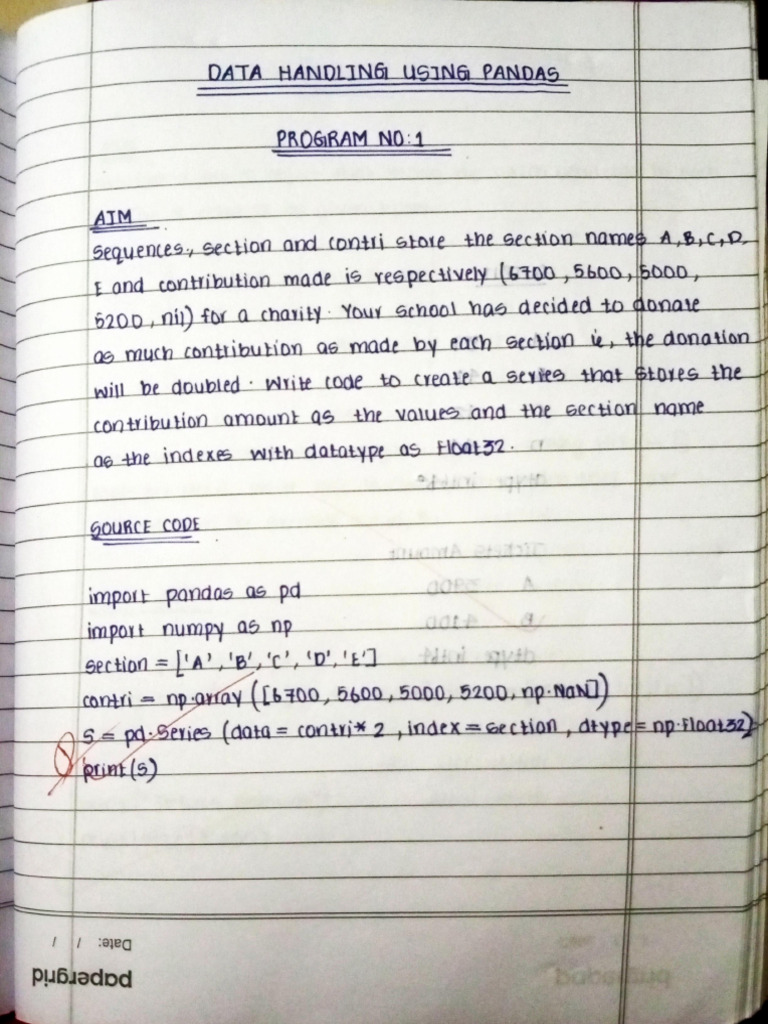 DATA HANDLING USING PANDAS
PROGRAM NO:1
AIM
Sequences, section and contri store the section names A,B,C,D,
E and contribution made is respectively (6700, 5600, 5000,
5200, nil) for a charity. Your school has decided to donate
as much contribution as made by each section ie, the donation
will be doubled. Write code to create a series that stores the
contribution amount as the values and the section name
as the indexes with datatype as Float32.
SOURCE CODE
import pandas as pd
import numpy as np
section = ['A', 'B', 'C', 'D', 'E']
contri = np.array([6700, 5600, 5000, 5200, np.NaN])
S = pd.Series (data = contri* 2, index = section, dtype = np.float32)
print(S)
Date: / /
papergrid